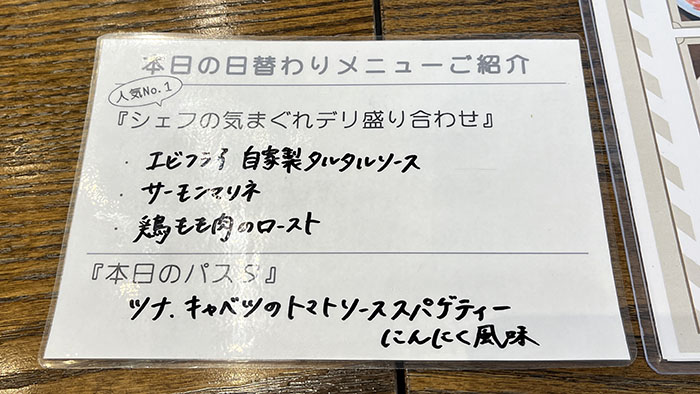 本日の日替わりメニューご紹介
人気No.1
『シェフの気まぐれデリ盛り合わせ』
・エビフライ 自家製タルタルソース
・サーモンマリネ
・鶏モモ肉のロースト
『本日のパスタ』
ツナ、キャベツのトマトソーススパゲティー
にんにく風味